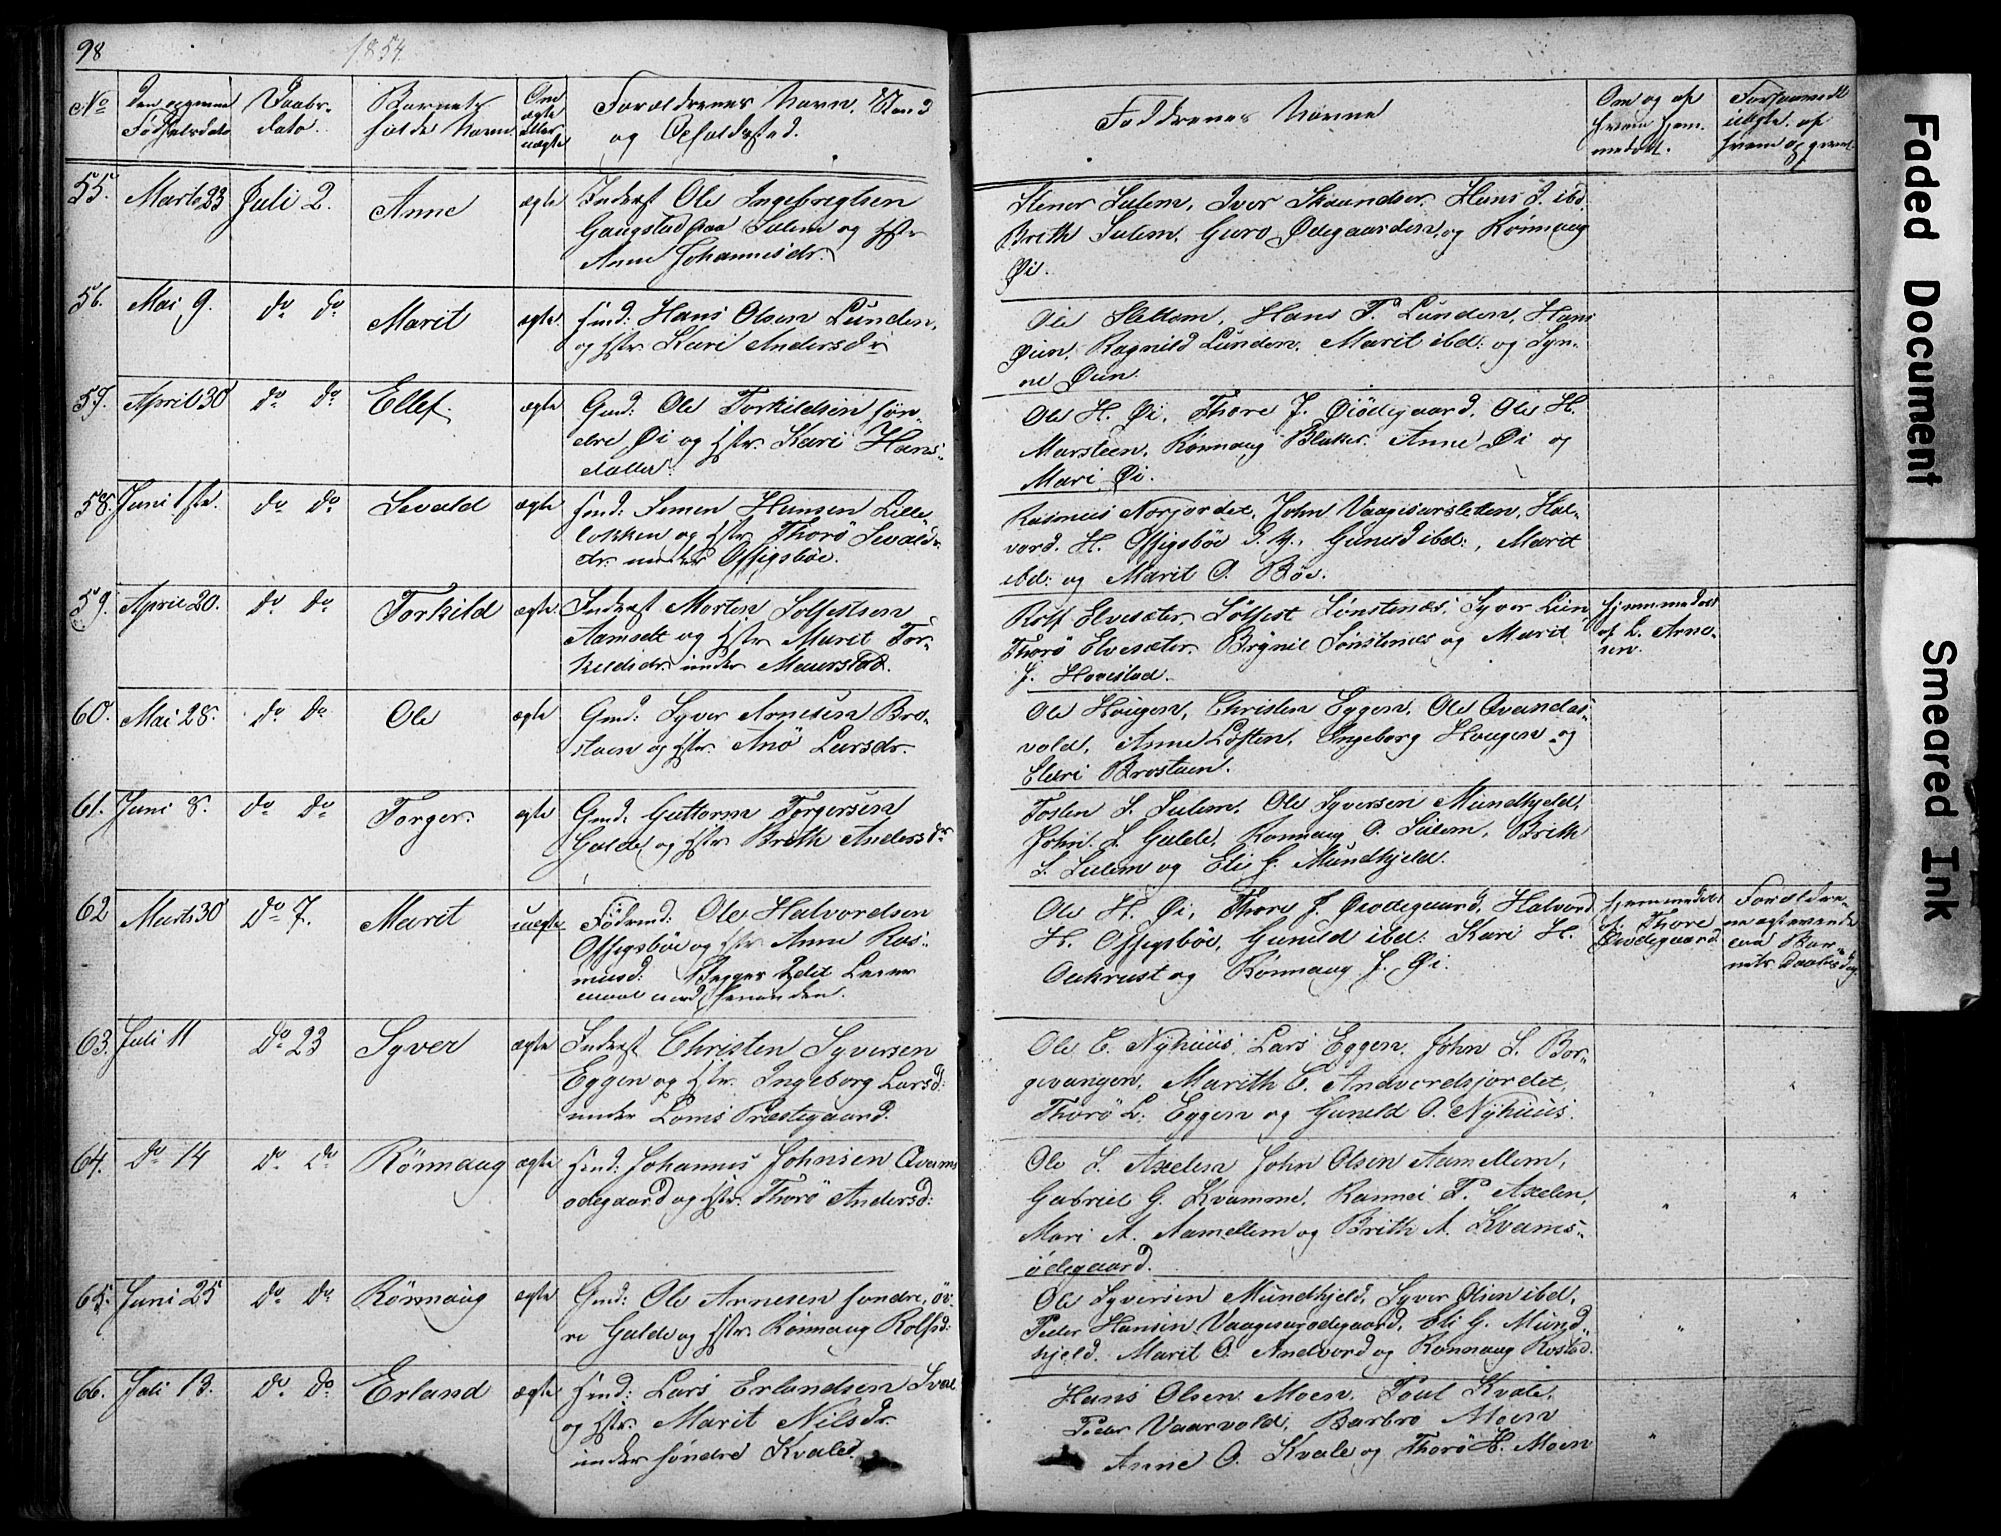 98
1854.
No
Den opgivne
Fødselsdato
Daabs-
dato.
Barnets
fulde Navn.
Om
ægte
eller
uægte
Forældrenes Navn, Stand
og Opholdssted.
Faddrenes Navne
Om og af
hvem hjem-
medøbt.
55. Marts 23 Juli 2. Anne ægte Inderst Ole Ingebregtsen
Gaugstad paa Sulem og Hstr.
Anne Johannisdr.
Stener Sulem, Iver Skaundser, Hans J. ibd.
Brith Sulem, Guro Ødegaarden, og Rönnaug
Øi.
56. Mai 9. do do Marit ægte Hmd: Hans Olsen Lunden,
og Hstr. Kari Andersdr
Ole Slettom, Hans P. Lunden, Hans
Øien, Ragnild Lunden, Marit ibd: og Syn-
ne Øien.
57. April 30 do do Ellef. ægte Gmd: Ole Torkildsen søn-
dre Øi og Hstr. Kari Hans-
datter.
Ole H. Øi, Thore J. Øiødegaard, Ole H.
Marsteen, Rønnaug Blakar, Anne Øi og
Mari Øi.
58. Juni 1ste. do do Sevald ægte Hmd: Simen Hansen Lille
løkken og Hstr. Thorø Sevalds-
dr. under Offigsbøe.
Rasmus Norjordet, John Vaagisarsletten, Hal-
vord H. Offigsbøe d. y., Gunild ibd:, Marit
ibd: og Marit O. Bøe.
59. April 20. do do Torkild ægte Inderst Morten Solfestsen
Aamodt og Hstr. Marit Tor-
kildsdr. under Maurstad.
Rolf Elvesæter, Solfest Sønstenæs, Syver Lien
Thorø Elvesæter, Brynil Sønstenæs og Marit
J. Hovistad.
hjemmedøbt
af L. Arne-
sen.
60. Mai 28. do do Ole ægte Gmd: Syver Arnesen Bro-
staen og Hstr. Anø Larsdr.
Ole Hougen, Christen Eggen, Ole Qvandas-
vold, Anne Loften, Ingeborg Hougen og
Eldri Brostaen.
61. Juni 8. do do Torger. ægte Gmd: Guttorm Torgersen
Galde og Hstr. Brith Andersdr
Tosten S. Sulem, Ole Syversen Mundhjeld,
John S. Galde, Rønnaug O. Sulem, Brith
S. Sulem og Eli G. Mundhjeld.
62 Marts 30 do 7. Marit uægte Födemd: Ole Halvordsen
Offigsbøe og Hstr. Anne Ras-
musd. Begges 2det Leier-
maal med hinanden.
Ole H. Øi, Thore J. Øiødegaard, Halvord
H. Offigsbøe, Gunild ibd: Kari H.
Aukrust og Rønnaug J. Øi.
hjemmedøbt
af Thore
Øiødegaard.
Forældre-
ne ægteviede
paa Bar-
nets Daabsdag
63. Juli 11 do 23 Syver ægte Inderst Christen Syversen
Eggen og Hstr. Ingeborg Larsd:
under Loms Præstegaard.
Ole C. Nyhuus, Lars Eggen, John S. Bor-
gevangen, Marith C. Andvordsjordet,
Thorø L. Eggen og Gunild O. Nyhuus.
64. do 14 do do Rönnaug ægte Hmd: Johannes Johnsen Qvams-
ødegaard og Hstr. Thorø Andersd:
Ole S. Axelen John Olsen Aamellem,
Gabriel G. Kvamme, Rannei P. Axelen,
Mari A. Aamellem og Brith A. Kvams-
ødegaard.
65. Juni 25 do do Rönnaug ægte Gmd: Ole Arnesen søndre, öv-
re Galde og Hstr. Rønnaug Rolfsd:
Ole Syversen Mundhjeld, Syver Olsen ibd,
Peder Hansen Vaagesarødegaard, Eli G. Mund-
hjeld, Marit O. Andvord og Rønnaug Rostad.
66. Juli 13. do do Erland ægte Hmd: Lars Erlandsen Kval
og Hstr. Marit Nilsdr.
under søndre Kvale.
Hans Olsen Moen, Poul Kvale,
Peder Vaarvold, Barbro Moen
Anne O. Kvale og Thorø H. Moen
Faded Document
Smeared Ink